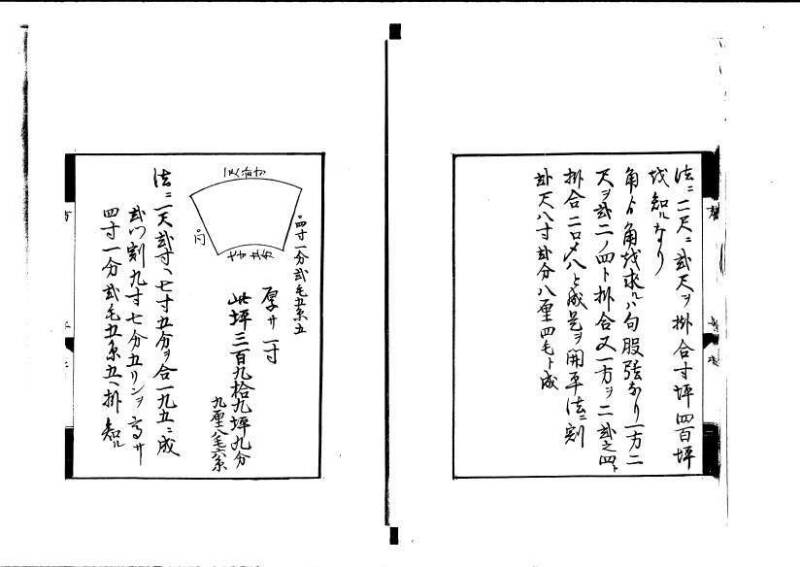 法ニ二尺ニ弐尺ヲ掛合寸坪四百坪
ト知ルなり
角ゟ角ヲ求ルハ勾股弦なり一方二
尺ヲ弐二ノ四ト掛合又一方ヲ二弐之四ト
掛合二口〆八ト成是ヲ開平法ニ割
弐尺八寸弐分八厘四毛ト成
四寸一分弐毛五糸五
厚サ一寸
此坪三百九拾九坪九分
九厘八毛六糸
法ニ一尺弐寸、七寸五分ヲ合一九五ニ成
弐ツ割九寸七分五リンヲ高サ
四寸一分弐毛五糸五ヲ掛知ル